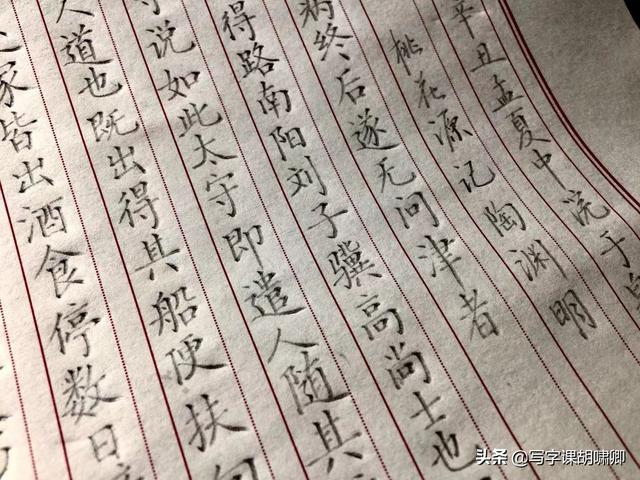 家皆出酒食停数日
人道也既出得其船便扶向
说如此太守即遣人随其
得路南阳刘子骥高尚士也
病终后遂无问津者
桃花源记 陶渊明
辛丑孟夏中浣于
头条 @写字课胡啸卿